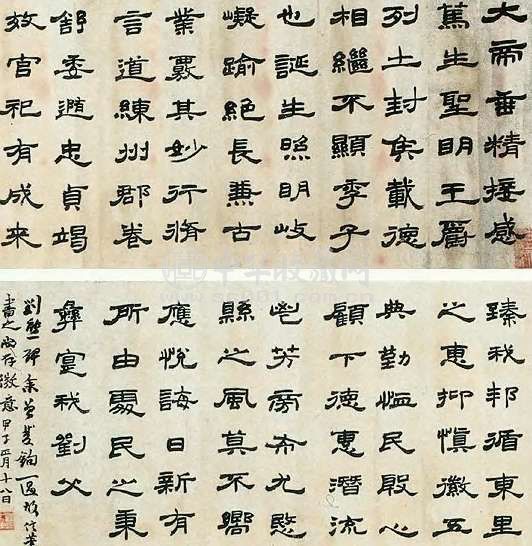 大帝垂精接感
篤生聖明王爵
列土封侯載德
相繼不顯季子
也誕生照明岐
嶷踰絕長兼古
業覈其妙行脩
言道練州郡卷
舒委隨忠貞竭
效官祀有成來
臻我邦循東里
之惠抑慎徽五
典勤恤民殷心
顧下德惠潛流
鬯芳旁布尤愍
縣之風莫不嚮
應悅誨日新有
所由處民之秉
彝寔我劉父
劉熊碑余曾雙鉤一過
書之 存 意甲子 月十八日
中华收藏网